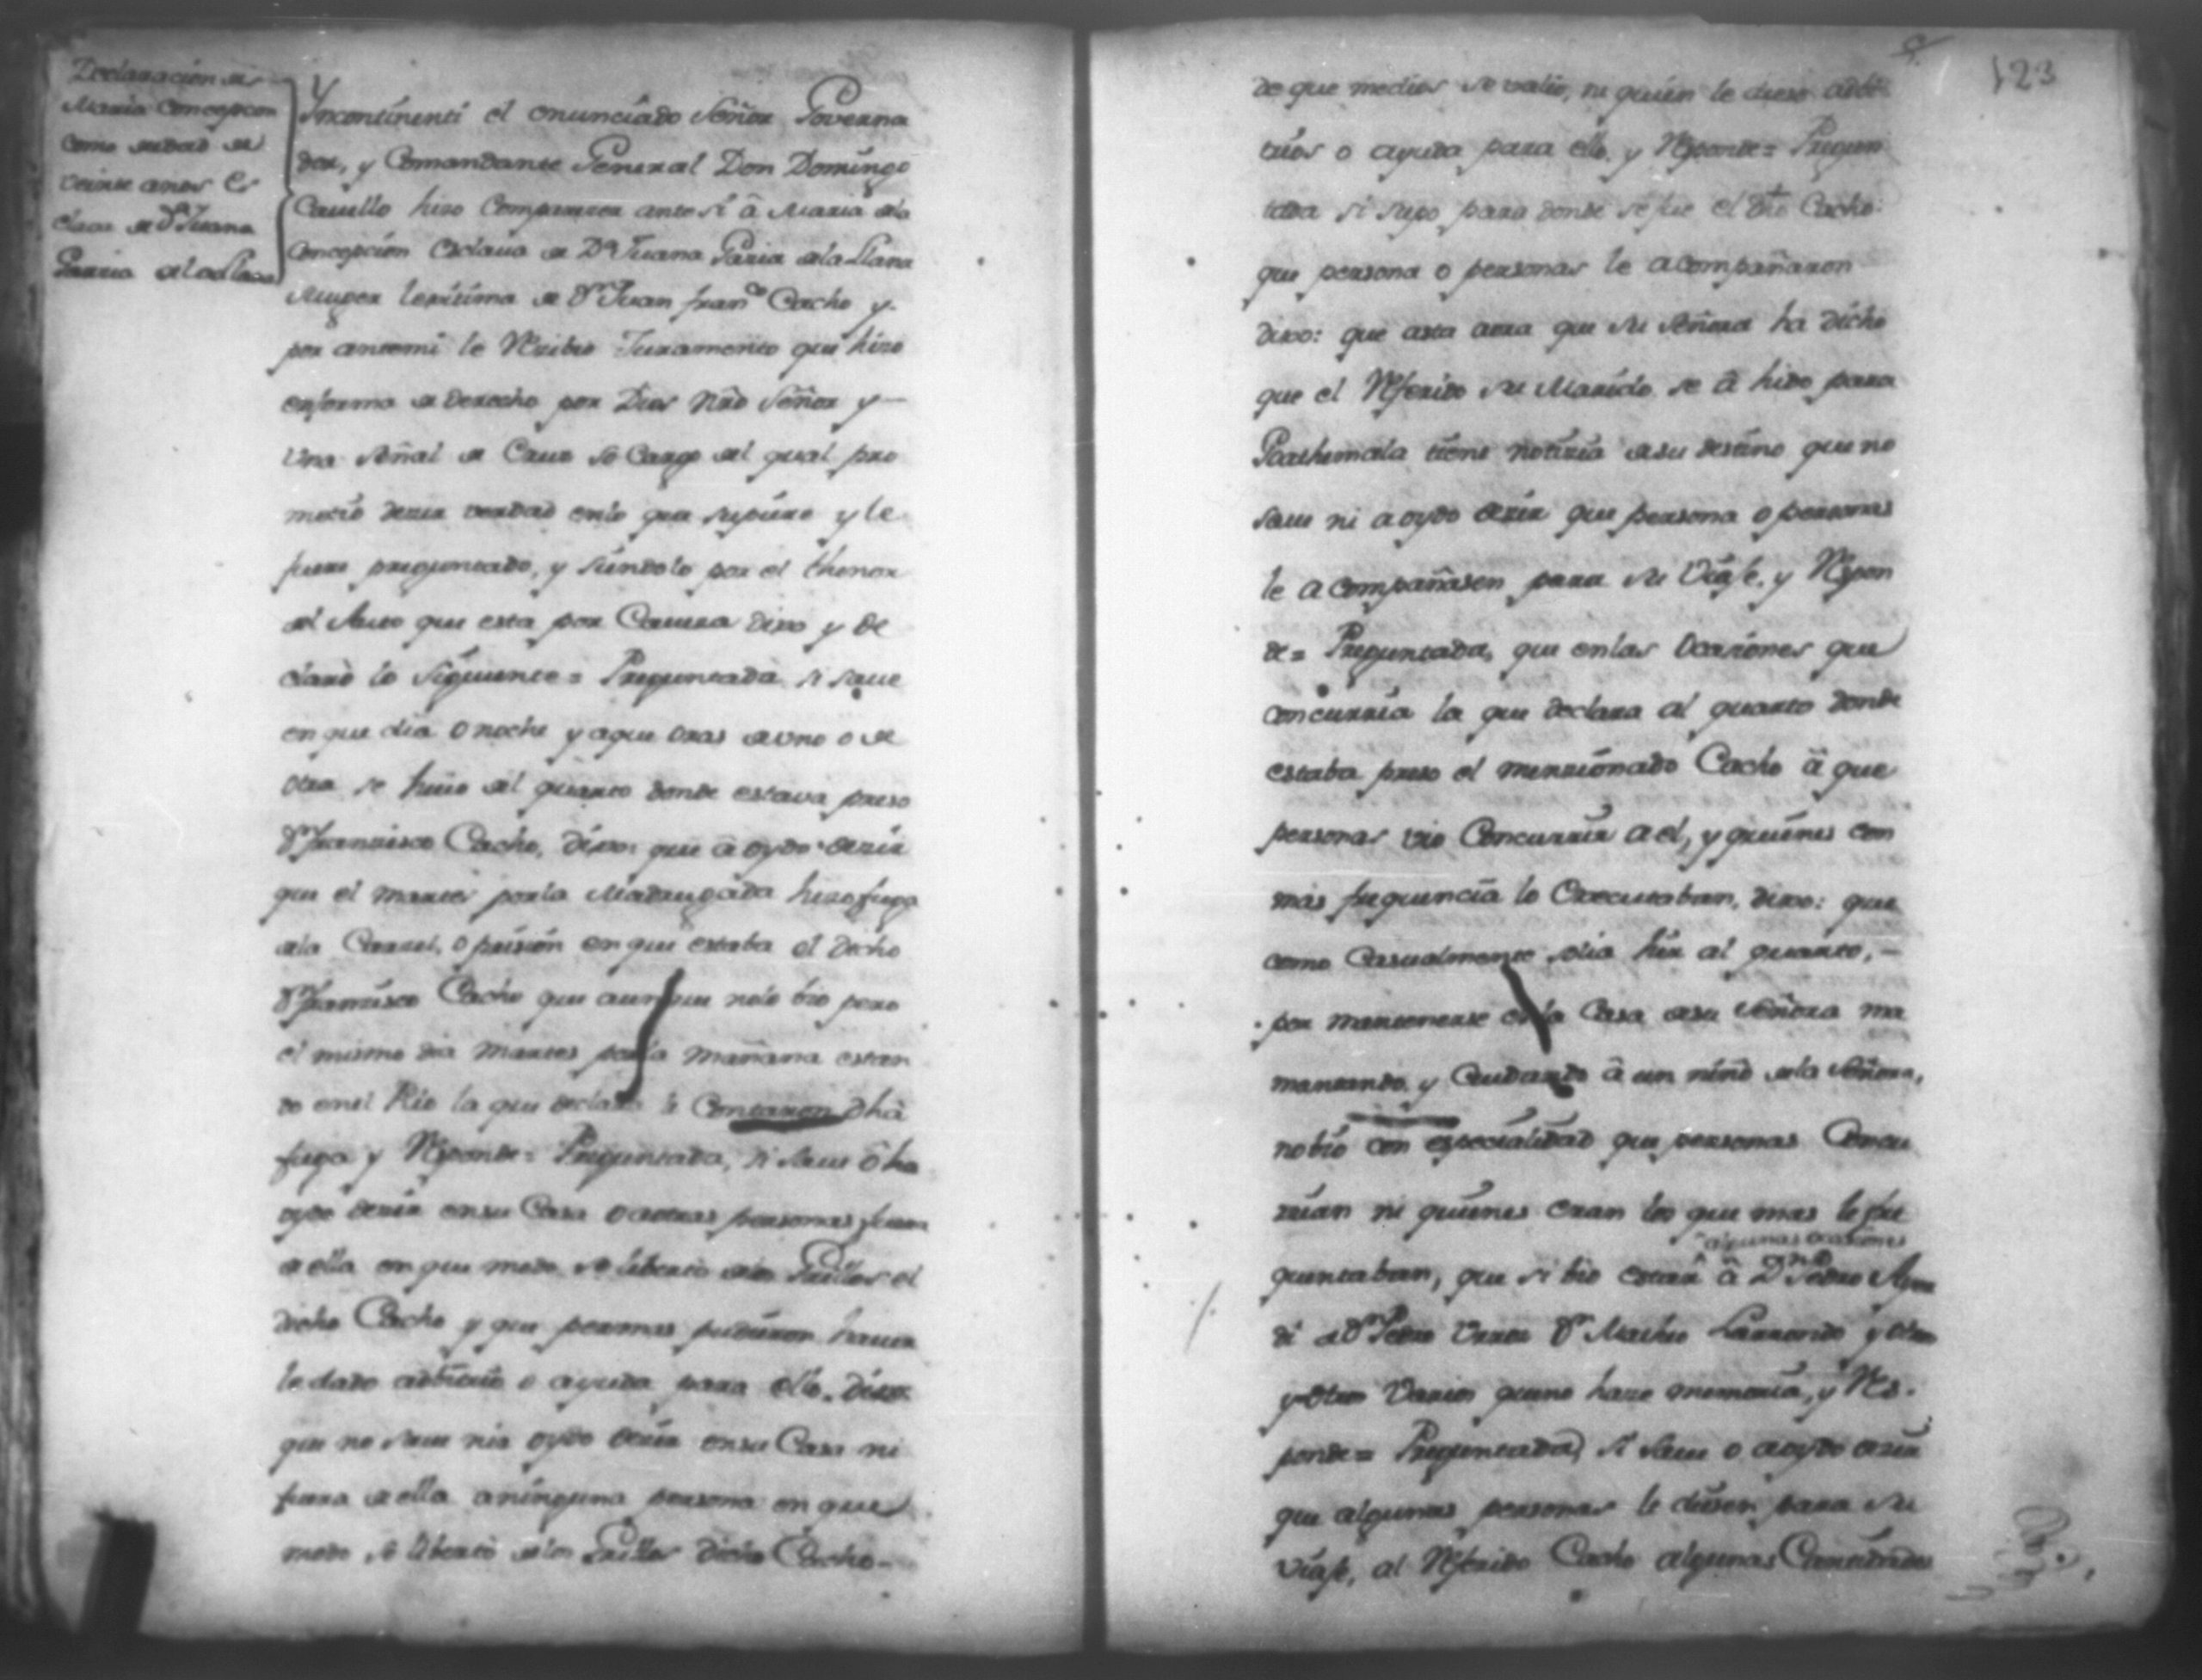 Declaracion de
Maria Concepcion
como de edad de
veinte anos Es
clava de Dª Juana
Garcia de la Llana
Yncontinenti el enunciado Señor Governa
dor, y Comandante General Don Domingo
Cavello hizo Comparecer ante si â Maria dela
Concepción Esclava de Dª Juana Garcia dela Llana
Muger lexitima de Dⁿ Juan franᶜᵒ Cacho y
por antemi le Recibio Juramento que hizo
enforma de derecho por Dios Nrô Señor y
Una Señal de Cruz so Cargo del qual pro
metió dezir verdad enlo que supiere y le
fuere preguntado, y siendolo por el thenor
del Auto que esta por Caveza dixo y de
claró lo siguiente = Preguntada si save
en que dia o noche y aque oras de uno o de
otra se huio del quarto donde estava preso
Dⁿ Francisco Cacho, dixo: que â oydo dezir
que el martes porla Madrugada hizo fuga
dela Carzel, o prisión en que estaba el dicho
Dⁿ Francisco Cacho que aunque nolo bio pero
el mismo dia Martes por la mañana estan
do enel Rio la que declara le Contaron dhâ
fuga y Responde = Preguntada, si save ô ha
oydo dezir ensu Casa o a otras personas fuera
de ella en que modo se libertó delos Grillos el
dicho Cacho y que personas pudieron haver
le dado advitrio o ayuda para ello. Dixo
que no save nia oydo dezir ensu Casa ni
fuera de ella aninguna persona en que
modo se libertó delos Grillos dicho Cacho
123
de que medios se valió, ni quién le diese advi
trios o ayuda para ello, y Responde = Pregun
tada si supo para donde se fue el dhô Cacho
que persona o personas le acompañaron
dixo: que asta aora que su Señora ha dicho
que el Referido su Marido se â hido para
Goathemala tiene noticia desu destino que no
save ni a oydo dezir que persona o personas
le acompañasen para su Viaje, y Respon
de = Preguntada, que enlas Ocasiones que
concurria la que declara al quarto donde
estaba preso el mencionado Cacho â que
personas vio Concurrir a el, y quiénes con
mas frequencia lo Executaban, dixo: que
como Casualmente solia hir al quarto,
por mantenerse en la Casa desu Señora ma
mantando y Cuidando â un niño dela Señora,
nobió con especialidad que personas Concu
rrian ni quienes eran los que mas le fre
algunas ocasiones
quentaban, que si bio estar â Dⁿ Pedro
di a Dⁿ Pedro Dⁿ Macho y otros
y otros Varios queno haze memoria, y Res
ponde = Preguntada, si save o a oydo dezir
que algunas personas le diesen para su
viaje, al Referido Cacho algunas Cantidades